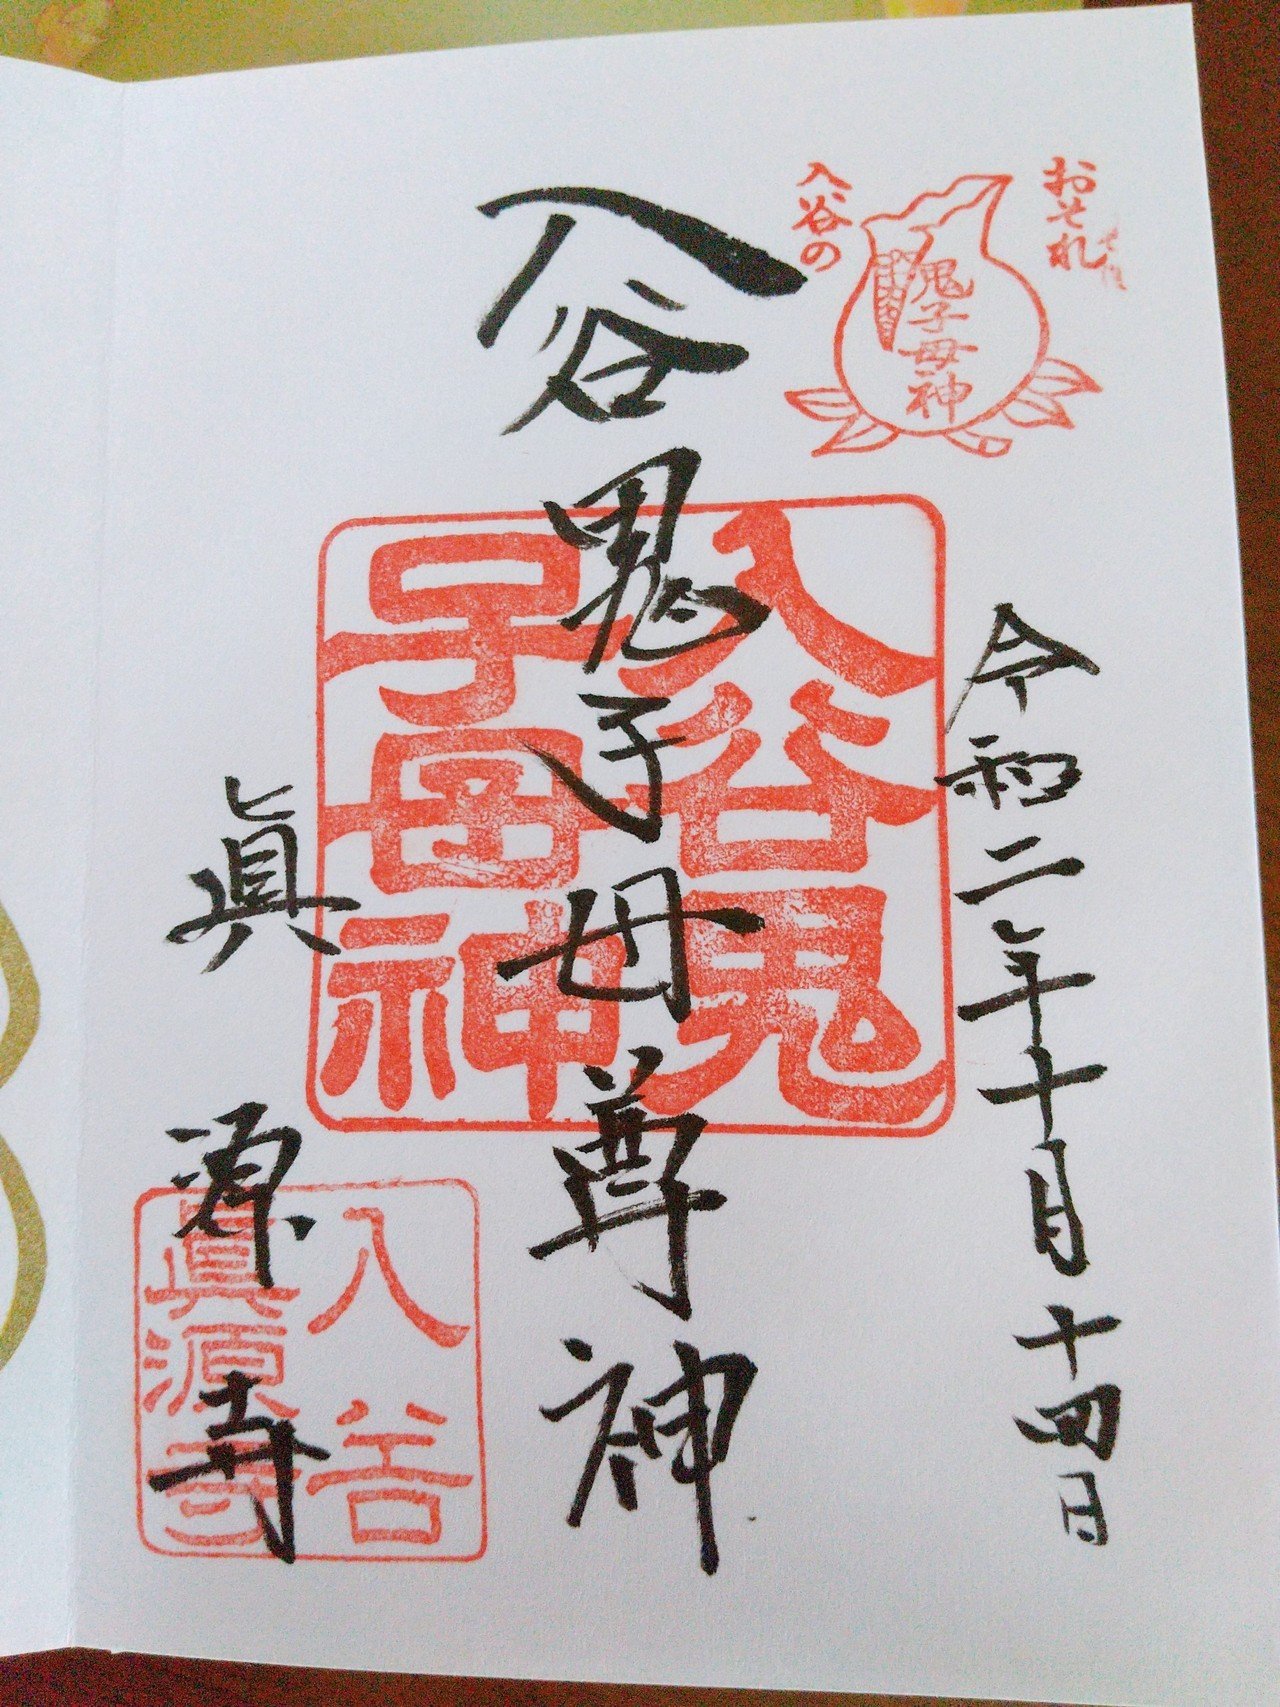 おそれ
入谷の
鬼子母神
令和二年十月十四日
入谷鬼子母尊神
入谷鬼
子母神
眞源寺
入谷
眞源寺